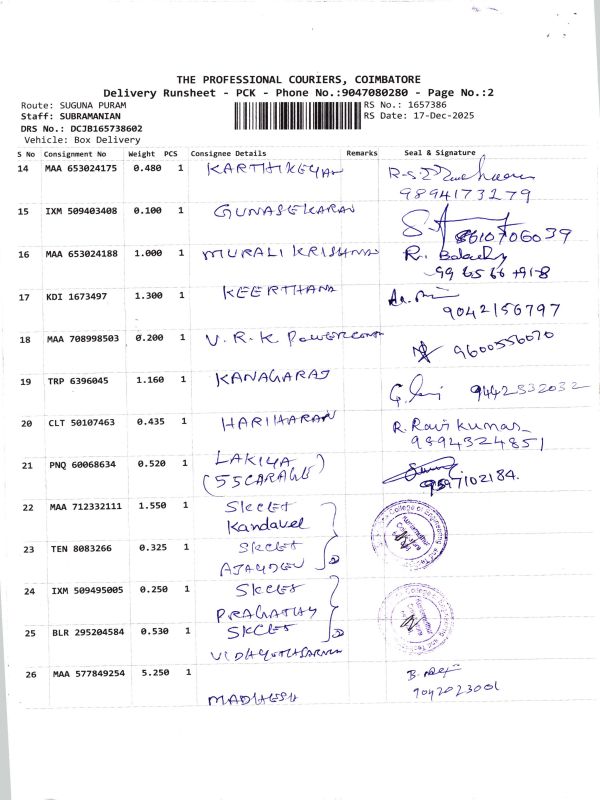 THE PROFESSIONAL COURIERS, COIMBATORE
Delivery Runsheet - PCK - Phone No.:9047080280 - Page No.:2
Route: SUGUNA PURAM RS No.: 1657386
Staff: SUBRAMANIAN RS Date: 17-Dec-2025
DRS No.: DCJB165738602
Vehicle: Box Delivery
S No Consignment No Weight PCS Consignee Details Remarks Seal & Signature
14 MAA 653024175 0.480 1 KARTHIKEYAN
9894173279
15 IXM 509403408 0.100 1 GUNASEKARAN
8610706039
16 MAA 653024188 1.000 1 MURALI KRISHNAN R.
17 KDI 1673497 1.300 1 KEERTHANA
9042156797
18 MAA 708998503 0.200 1 V.R.K POWERCONN
9600556070
19 TRP 6396045 1.160 1 KANAGARAJ
9442532032
20 CLT 50107463 0.435 1 HARIHARAN R. Ravi Kumar
9894324851
21 PNQ 60068634 0.520 1 LAKIYA
(SSCARAGE) 9597102184.
22 MAA 712332111 1.550 1 SKCET
Kandavel
23 TEN 8083266 0.325 1 SKCET
AJAYDEV
24 IXM 509495005 0.250 1 SKCET
PRAGATHY
25 BLR 295204584 0.530 1 SKCET
26 MAA 577849254 5.250 1
MADHESH 9042023001